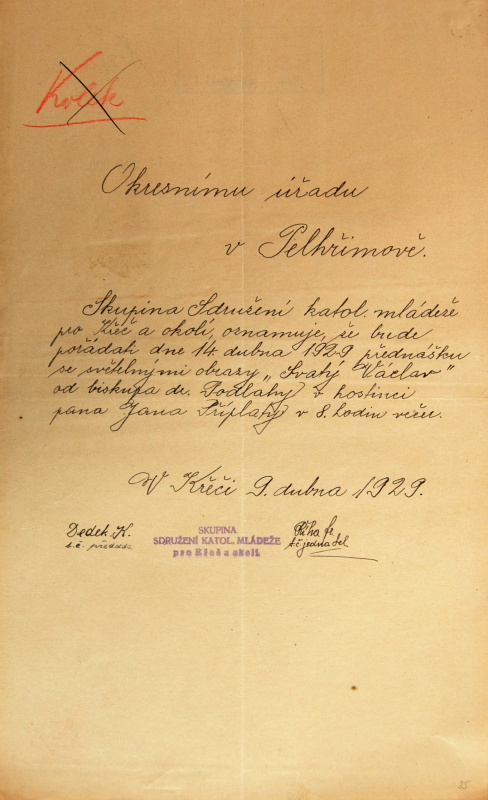 Kolek
Okresnímu úřadu
v Pelhřimově.
Skupina Sdružení katol. mládeže
pro Křeč a okolí, oznamuje, že bude
pořádati dne 14. dubna 1929 přednášku
se světelnými obrazy „Svatý Václav"
od biskupa dr. Podlahy v hostinci
pana Jana Příplaty v 8. hodin večer.
V Křeči 9. dubna 1929.
Dedek. K.
t.č. předseda
SKUPINA
SDRUŽENÍ KATOL. MLÁDEŽE
pro Křeč a okolí.
Říha
t.č. jednatel
35